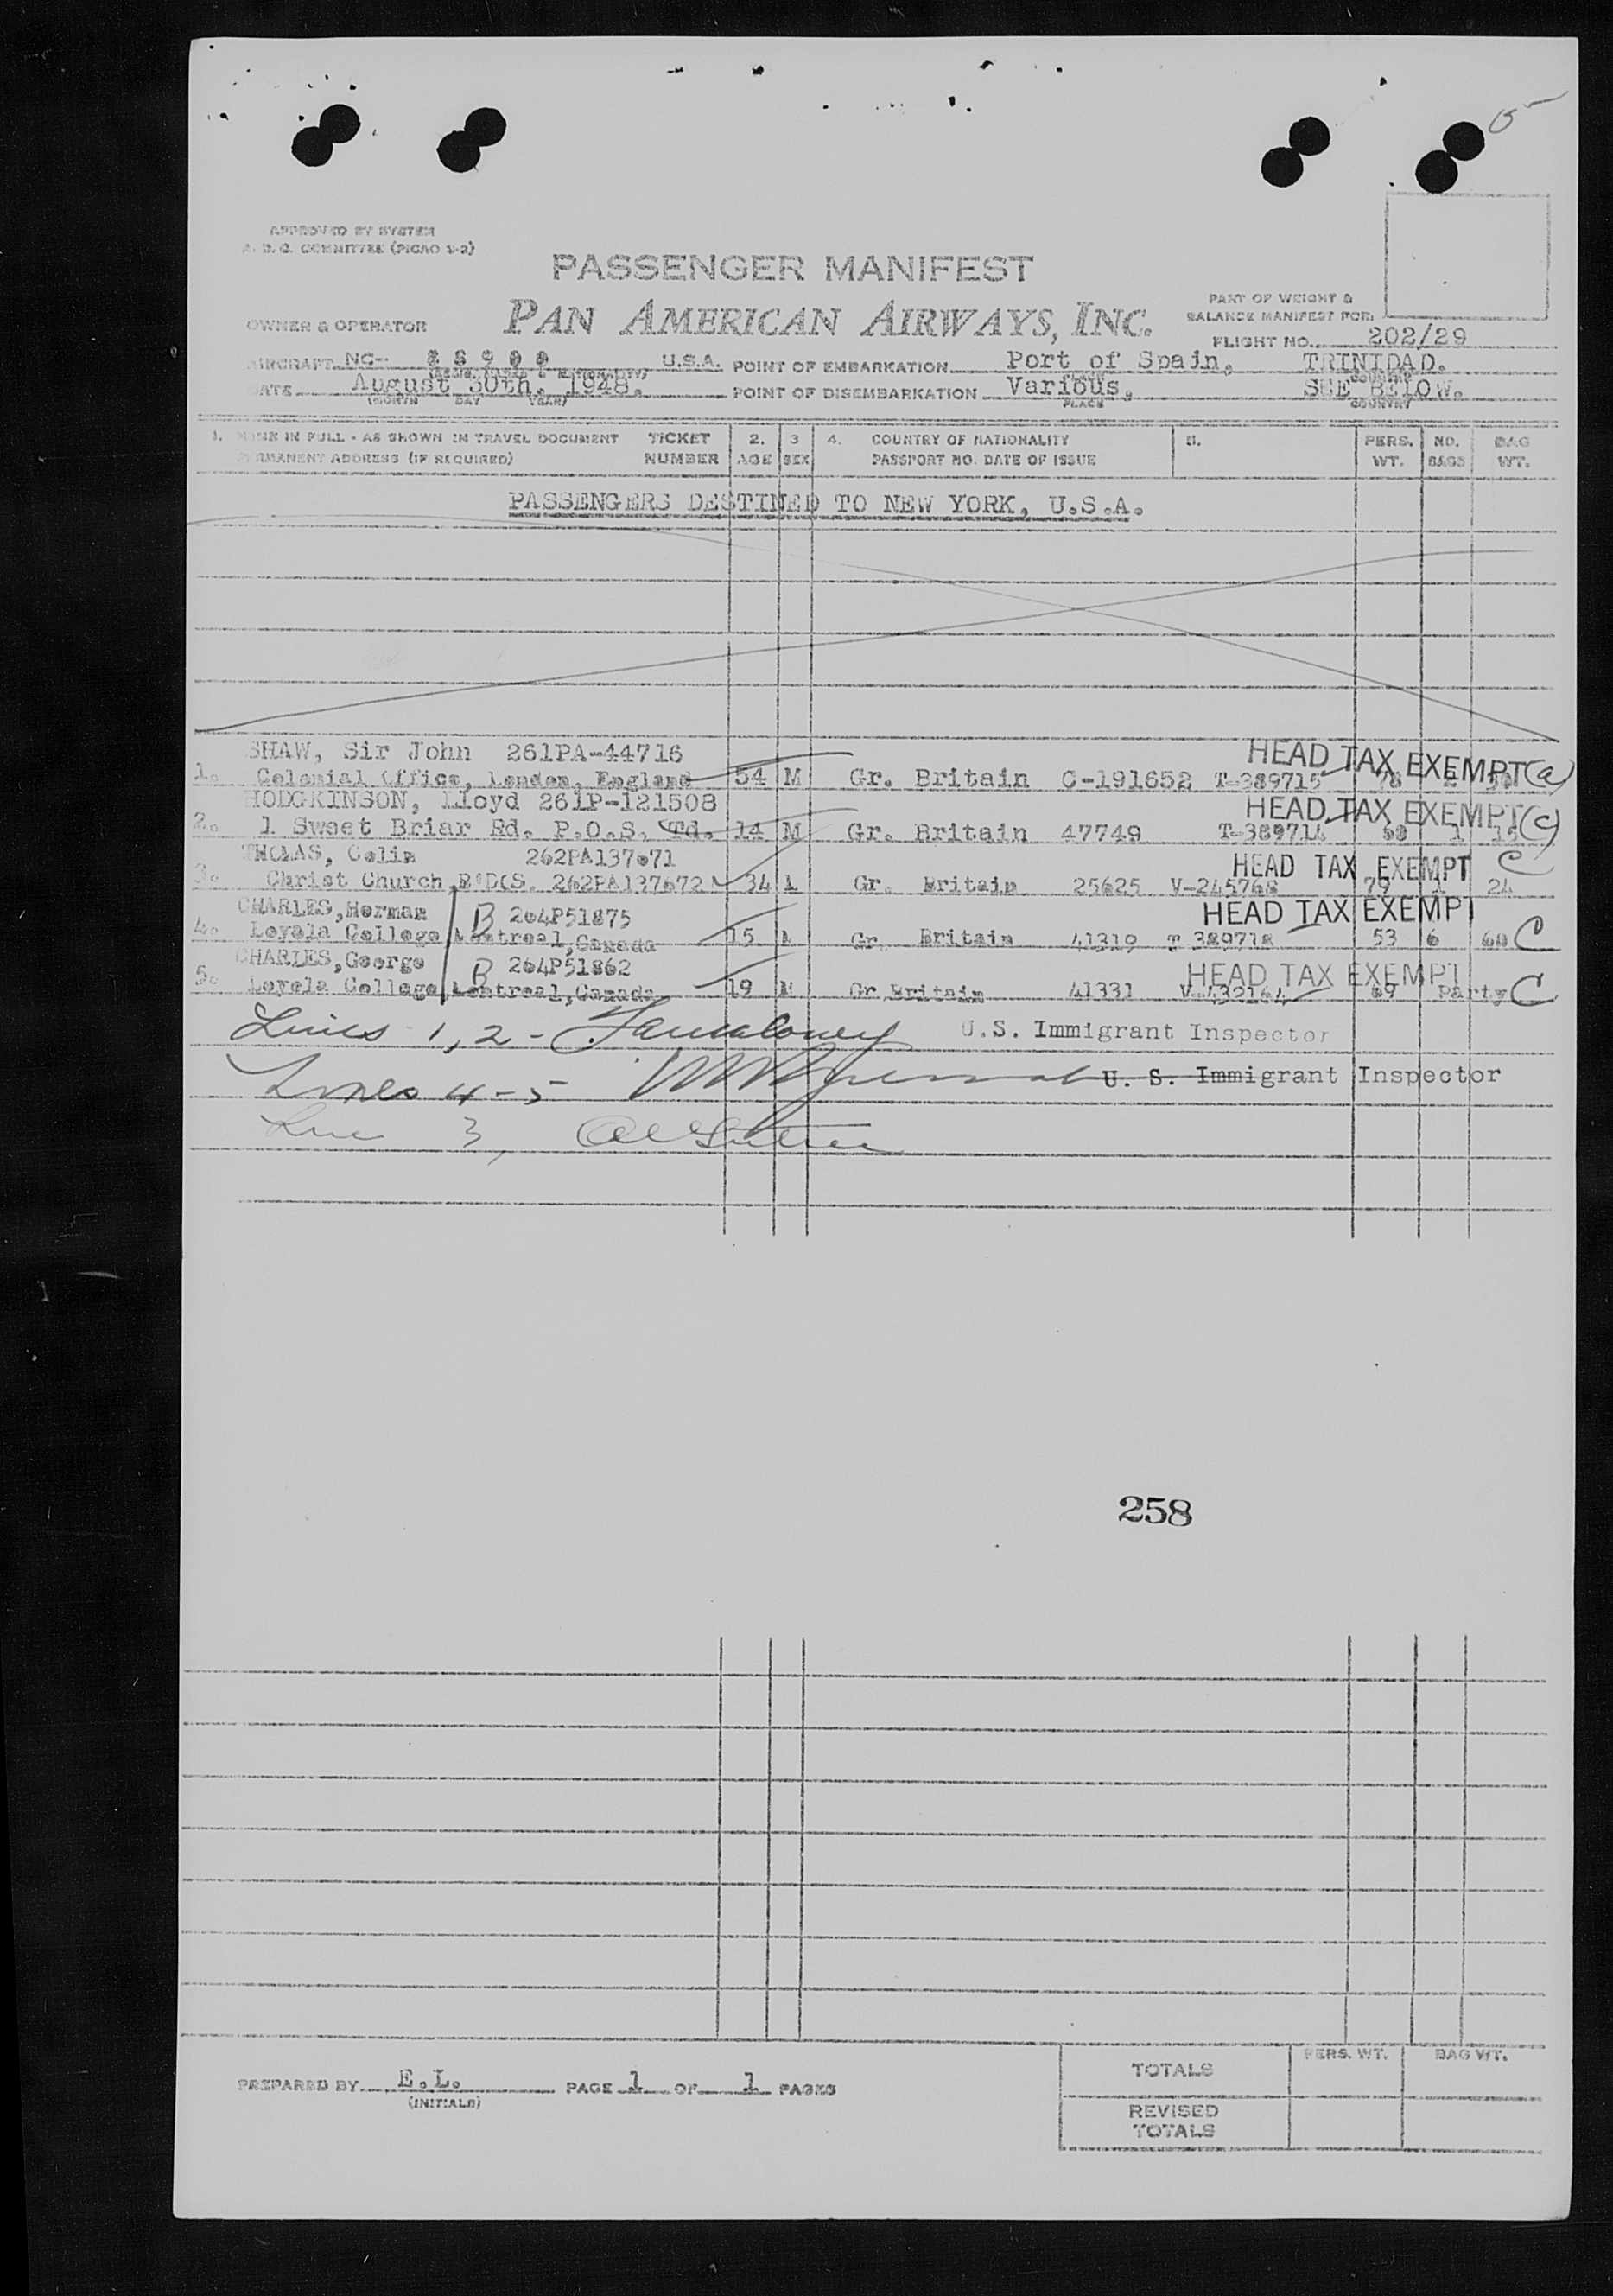 APPROVED BY SYSTEM
A. D. C. COMMITTEE (PICAO 2-2)
PASSENGER MANIFEST
OWNER & OPERATOR PAN AMERICAN AIRWAYS, INC.
PART OF WEIGHT &
BALANCE MANIFEST FOR:
FLIGHT NO. 202/29
AIRCRAFT NC- U.S.A. POINT OF EMBARKATION Port of Spain, TRINIDAD.
DATE August 30th, 1948. POINT OF DISEMBARKATION Various, SEE BELOW.
(MONTH DAY YEAR) PLACE COUNTRY
1. NAME IN FULL - AS SHOWN IN TRAVEL DOCUMENT TICKET 2. 3 4. COUNTRY OF NATIONALITY PERS. NO. BAG
PERMANENT ADDRESS (IF REQUIRED) NUMBER AGE SEX PASSPORT NO. DATE OF ISSUE WT. BAGS WT.
PASSENGERS DESTINED TO NEW YORK, U.S.A.
SHAW, Sir John 261PA-44716 HEAD TAX EXEMPT (a)
1. Colonial Office, London, England 54 M Gr. Britain C-191652 T-389715 78
HODGKINSON, Lloyd 261P-121508 HEAD TAX EXEMPT (c)
2. 1 Sweet Briar Rd. P.O.S. Td. 14 M Gr. Britain 47749 T-389714 1 15
THOMAS, Colin 262PA137671 HEAD TAX EXEMPT C
3. Christ Church, B'DOS. 262PA137672 34 Gr. Britain 25625 V-245768 79 1 24
CHARLES, Herman B 264P51875 HEAD TAX EXEMPT
4. Loyola College, Montreal, Canada 15 Gr. Britain 41319 T 389718 53 6 68 C
CHARLES, George B 264P51862 HEAD TAX EXEMPT
5. Loyola College, Montreal, Canada 19 M Gr Britain 41331 V-432164 69 Party C
Lines 1, 2 - U.S. Immigrant Inspector
Lines 4-5 U. S. Immigrant Inspector
Line 3,
258
PREPARED BY E.L. PAGE 1 OF 1 PAGES
(INITIALS)
TOTALS PERS. WT. BAG WT.
REVISED
TOTALS